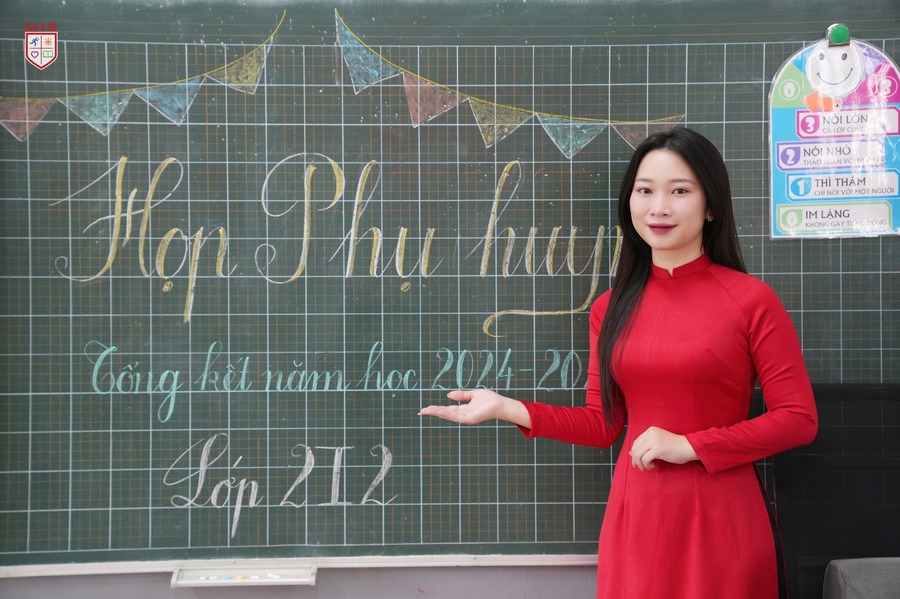 MIS
Họp Phụ huy
Tổng kết năm học 2024-20
Lớp 2I2
3 NÓI LỚN
CẢ LỚP CÙNG
2 NÓI NHỎ
THẢO LUẬN VỚI
1 THÌ THẦM
CHỈ NÓI VỚI MỘT NGƯỜI
0 IM LẶNG
KHÔNG GÂY TIẾNG ĐỘNG